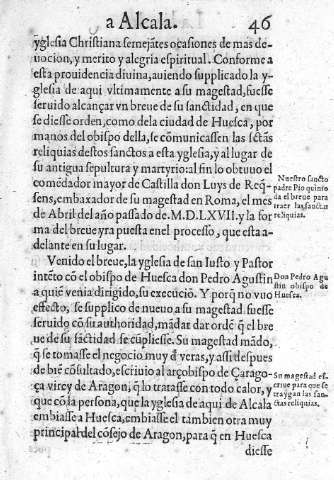 a Alcala. 46
yglesia Christiana semejãtes ocasiones de mas de-
uocion, y merito y alegria espiritual. Conforme a
esta prouidencia diuina, auiendo supplicado la y-
glesia de aqui vltimamente a su magestad, fuesse
seruido alcançar vn breue de su sanctidad, en que
se diesse orden, como dela ciudad de Huesca, por
manos del obispo della, se cõmunicassen las sctãs
reliquias destos sanctos a esta yglesia, y al lugar de
su antigua sepultura y martyrio: al fin lo obtuuo el
comẽdador mayor de Castilla don Luys de Req̃-
sens, embaxador de su magestad en Roma, el mes
de Abril del año passado de M.D.LXVII. y la for
ma del breue yra puesta enel processo, que esta a-
delante en su lugar.
Nuestro sancto
padre Pio quinto
da el breue para
traer las sanctas
reliquias.
Venido el breue, la yglesia de san Iusto y Pastor
intẽto cõ el obispo de Huesca don Pedro Agustin
a quiẽ venia dirigido, su execuciõ. Y porq̃ no vuo
effecto, se supplico de nueuo a su magestad fuesse
seruido cõ su authoridad, mãdar dar ordẽ q̃ el bre
ue de su sãctidad se cũpliesse. Su magestad mãdo,
q̃ se tomasse el negocio muy d̃ veras, y assi despues
de biẽ cõsultado, escriuio al arçobispo de Çarago-
ça virey de Aragon, q̃ lo tratasse con todo calor, y
que cõ la persona, que la yglesia de aqui de Alcala
embiasse a Huesca, embiasse el tambien otra muy
principal del cõsejo de Aragon, para q̃ en Huesca
diesse
Don Pedro Agu
stin obispo de
Huesca.
Su magestad es
criue para que se
traygan las san-
ctas reliquias.